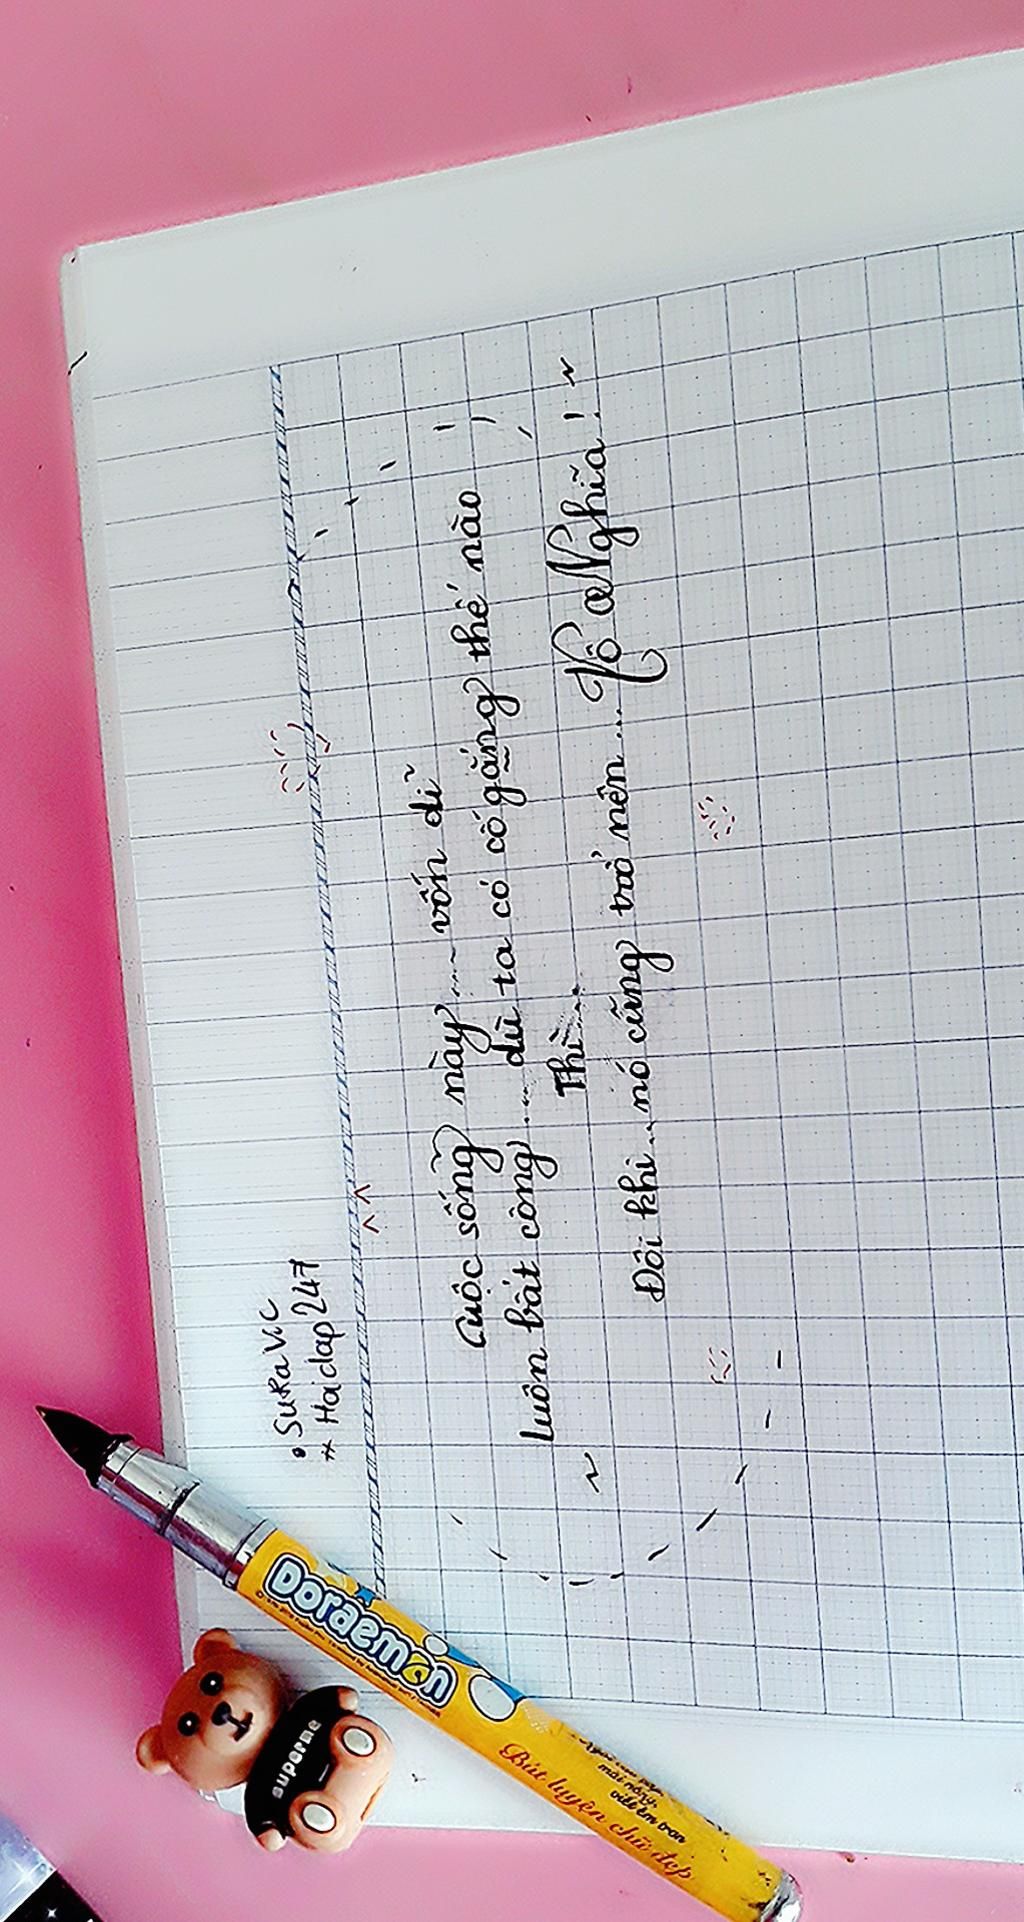 • SuKa ViC
# Haidap247
Cuộc sống này.... vốn dĩ
luôn bất công.... dù ta có cố gắng thế nào
Thì....
Đôi khi...nó cũng trở nên... Vô Nghĩa!
DORaemon
Bút luyện chữ đẹp
mài nóng,
viết êm trơn
superme